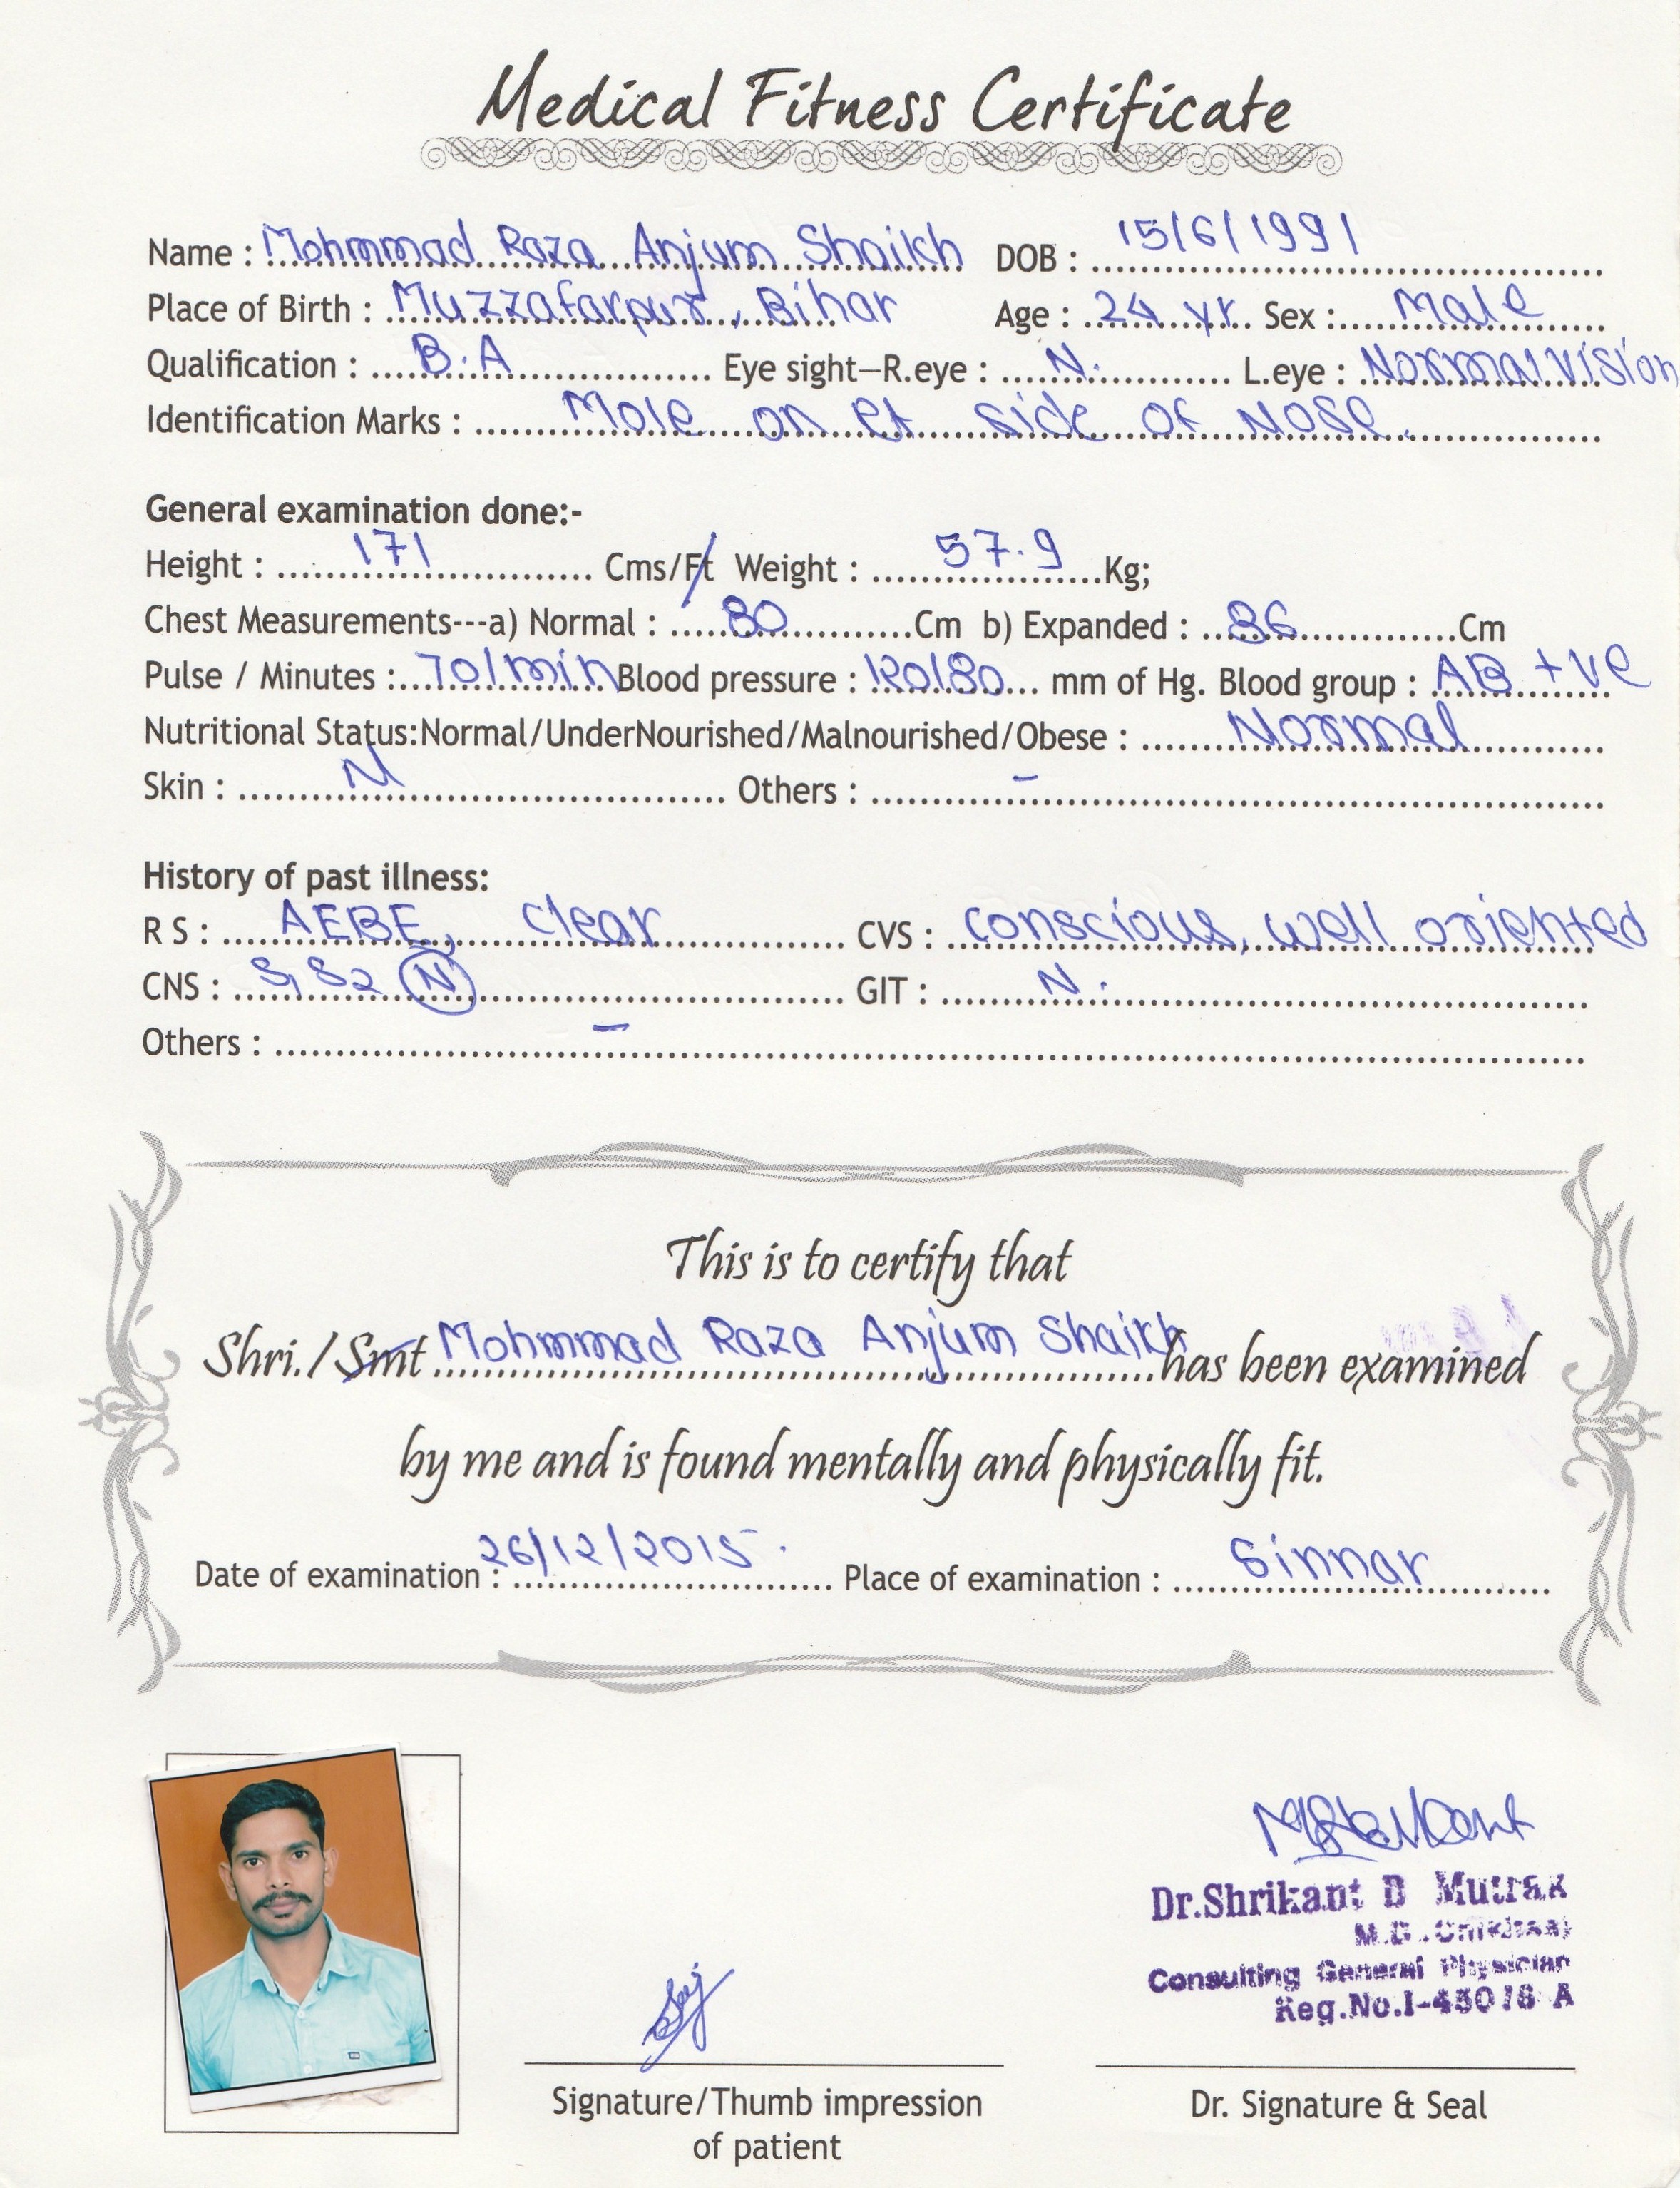 Medical Fitness Certificate
Name : Mohmmad Raza Anjum Shaikh DOB : 15/6/1991
Place of Birth : Muzzafarpur, Bihar Age : 24 yr. Sex : Male
Qualification : B.A Eye sight—R.eye : N. L.eye : Normal vision
Identification Marks : Mole on Rt side of Nose.
General examination done:-
Height : 171 Cms/Ft Weight : 57.9 Kg;
Chest Measurements---a) Normal : 80 Cm b) Expanded : 86 Cm
Pulse / Minutes : 70/min Blood pressure : 120/80 mm of Hg. Blood group : AB +ve
Nutritional Status:Normal/UnderNourished/Malnourished/Obese : Normal
Skin : N Others : -
History of past illness:
R S : AEBE, clear CVS : conscious, well oriented
CNS : S1 S2 N GIT : N.
Others : -
This is to certify that
Shri./Smt Mohmmad Raza Anjum Shaikh has been examined
by me and is found mentally and physically fit.
Date of examination : 26/12/2015. Place of examination : Sinnar
Dr.Shrikant B
M.D.
Consulting General Physician
Reg.No.I-45076 A
Signature/Thumb impression
of patient
Dr. Signature & Seal